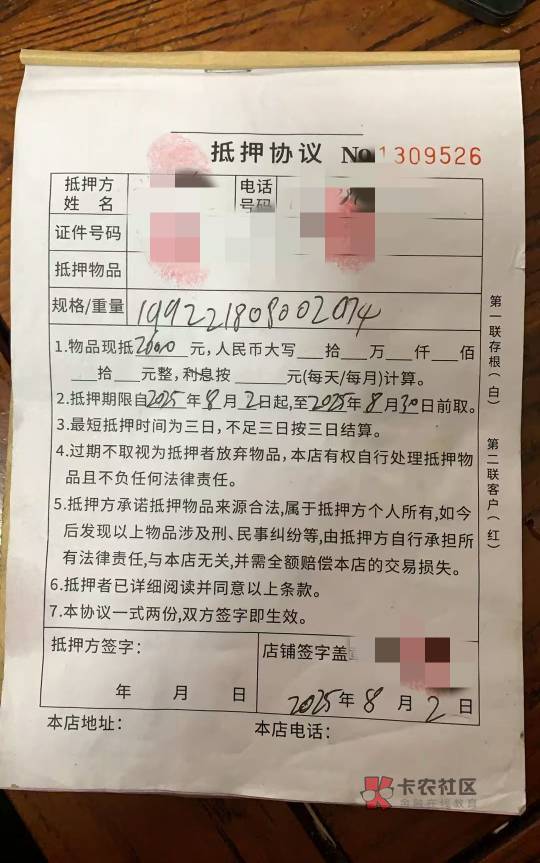 抵押协议 No 1309526
抵押方
姓 名
电话
号码
证件号码
抵押物品
规格/重量 199221808002074
1.物品现抵2000元,人民币大写___拾___万___仟___佰
___拾___元整,利息按______元(每天/每月)计算。
2.抵押期限自2025年8月2日起,至2025年8月30日前取。
3.最短抵押时间为三日,不足三日按三日结算。
4.过期不取视为抵押者放弃物品,本店有权自行处理抵押物
品且不负任何法律责任。
5.抵押方承诺抵押物品来源合法,属于抵押方个人所有,如今
后发现以上物品涉及刑、民事纠纷等,由抵押方自行承担所
有法律责任,与本店无关,并需全额赔偿本店的交易损失。
6.抵押者已详细阅读并同意以上条款。
7.本协议一式两份,双方签字即生效。
抵押方签字:
年 月 日
店铺签字盖
2025年8月2日
本店地址:
本店电话:
第一联存根(白)
第二联客户(红)
卡农社区
金融在线教育